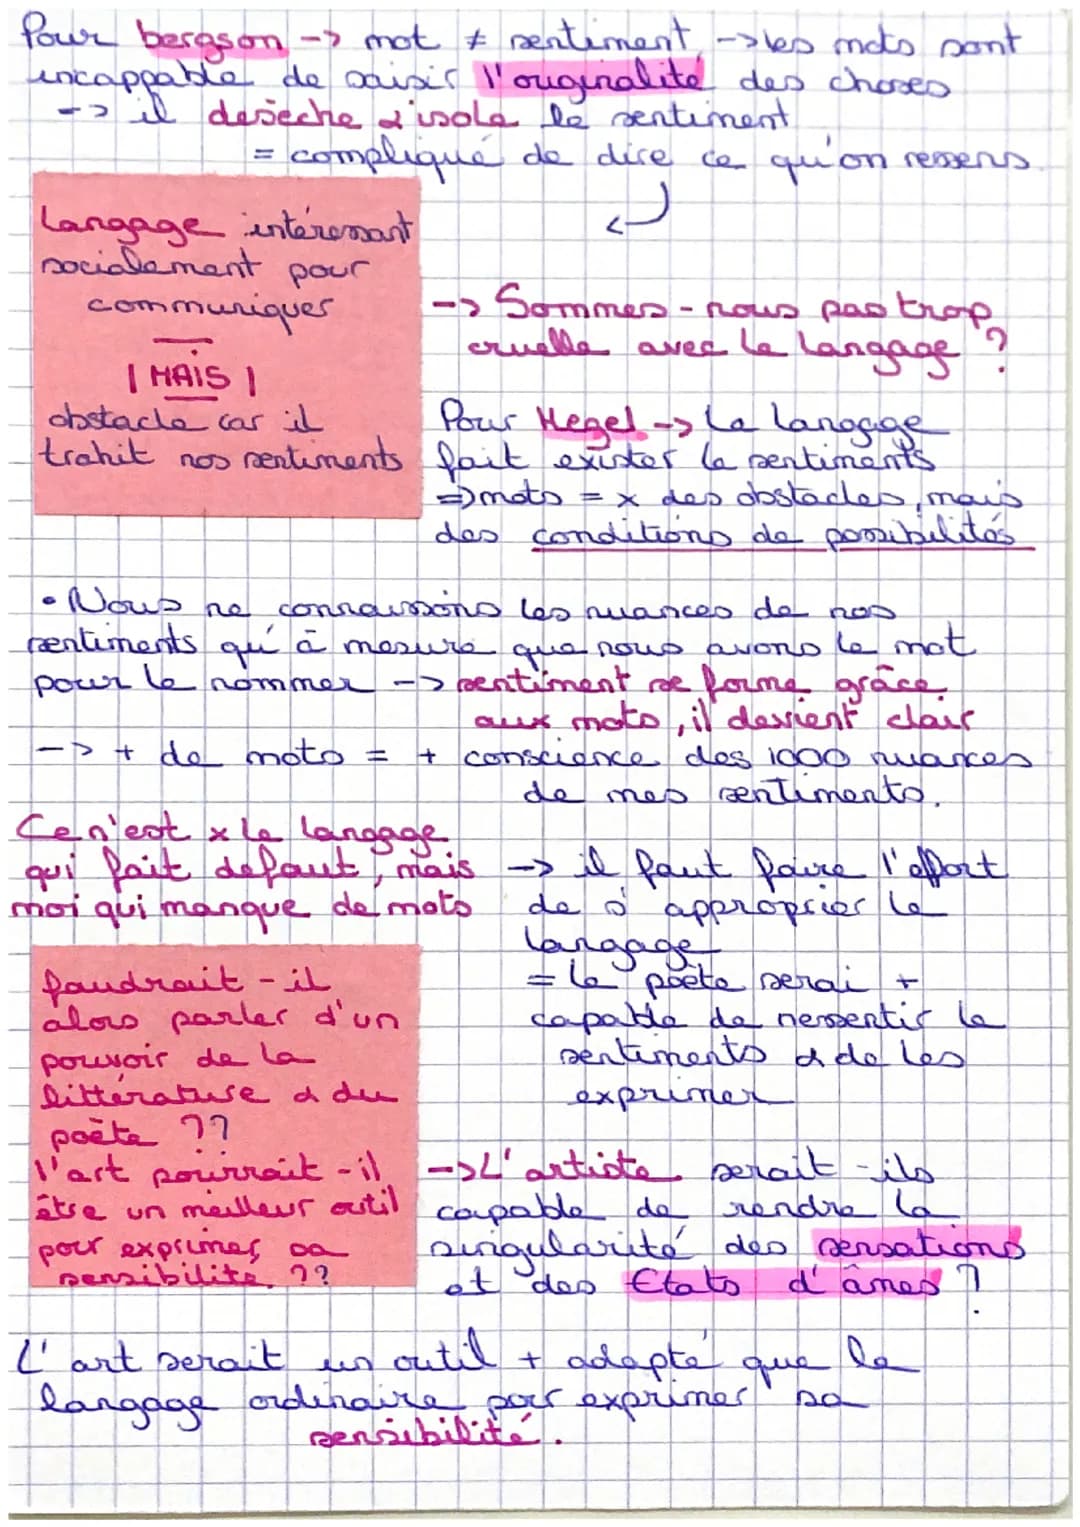 Pour bergson -> mot ≠ sentiment, -> les mots sont
incappable de saisir l'originalité des choses
-> il desèche & isole le sentiment
= compliqué de dire ce qu'on ressens
Langage intéressant
socialement pour
communiquer
| MAIS |
obstacle car il
trahit nos sentiments
-> Sommes-nous pas trop
cruelle avec le langage ?
Pour Hegel -> Le langage
fait exister le sentiments
=> mots = x des obstacles, mais
des conditions de possibilités
• Nous ne connaissons les nuances de nos
sentiments qu'à mesure que nous avons le mot
pour le nommer -> sentiment se forme grâce
aux mots, il devient clair
-> + de mots = + conscience des 1000 nuances
de mes sentiments.
Ce n'est x le langage
qui fait defaut, mais
moi qui manque de mots
-> il faut faire l'effort
de s'approprier le
langage
= le poète serai +
capable de ressentir le
sentiments & de les
exprimer
faudrait-il
alors parler d'un
pouvoir de la
littérature & du
poète ??
l'art pourrait-il
être un meilleur outil
pour exprimer sa
sensibilité ??
-> L'artiste serait-ils
capable de rendre la
singularité des sensations
et des Etats d'âmes ?
L'art serait un outil + adapté que le
langage ordinaire pour exprimer sa
sensibilité.